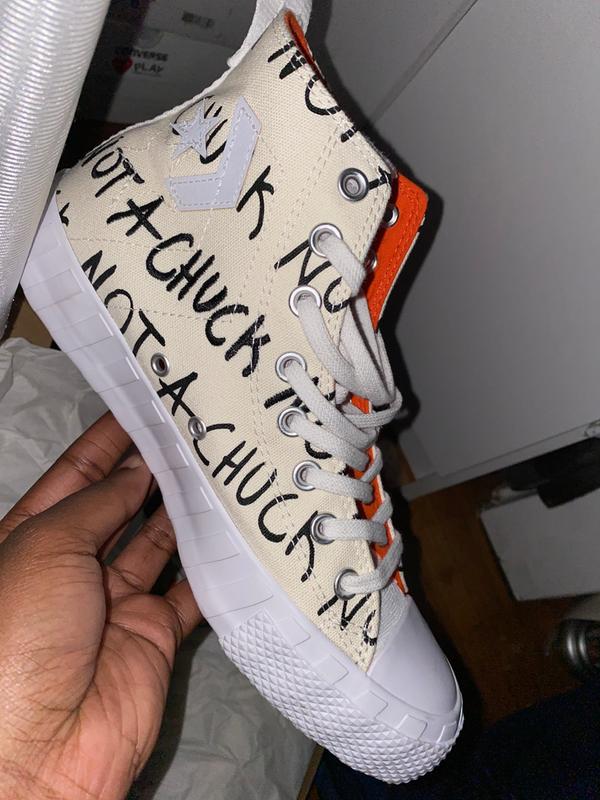 CONVERSE
PLAY
NOT
CHUCK NO
NOT A CHUCK NO
NOT A CHUCK NO